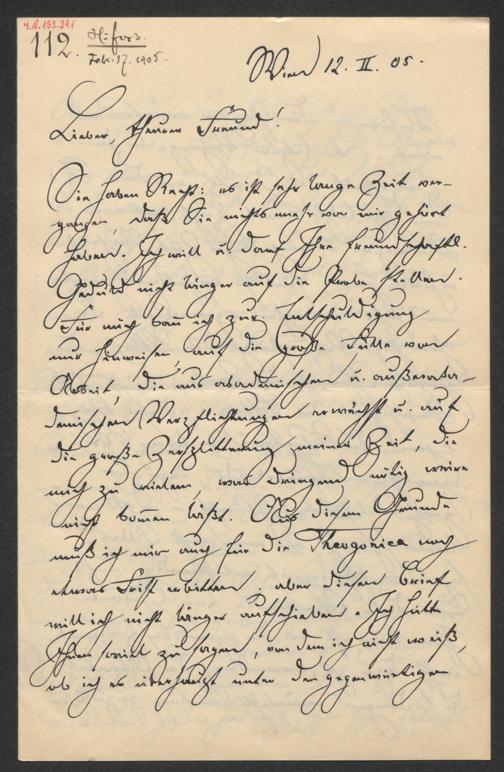 I.N. 132.291
112.
H: fors.
Feb. 17. 1905.
Wien 12. II. 05.
Lieber, theurer Freund!
Sie haben Recht: es ist sehr lange Zeit ver-
gangen, daß Sie nichts mehr von mir gehört
haben. Ich will u. darf Ihre freundschaftl.
Geduld nicht länger auf die Probe stellen.
Für mich kann ich zur Entschuldigung
nur hinweisen auf die große Fülle von
Arbeit, die aus akademischen u. außeraka-
demischen Verpflichtungen erwächst u. auf
die große Zersplitterung meiner Zeit, die
mich zu vielem, was dringend nötig wäre
nicht kommen läßt. Aus diesem Grunde
muß ich mir auch für die Theogonica noch
etwas Frist erbitten; aber diesen Brief
will ich nicht länger aufschieben. Ich hätte
Ihnen soviel zu sagen, von dem ich nicht weiß,
ob ich es überhaupt unter den gegenwärtigen